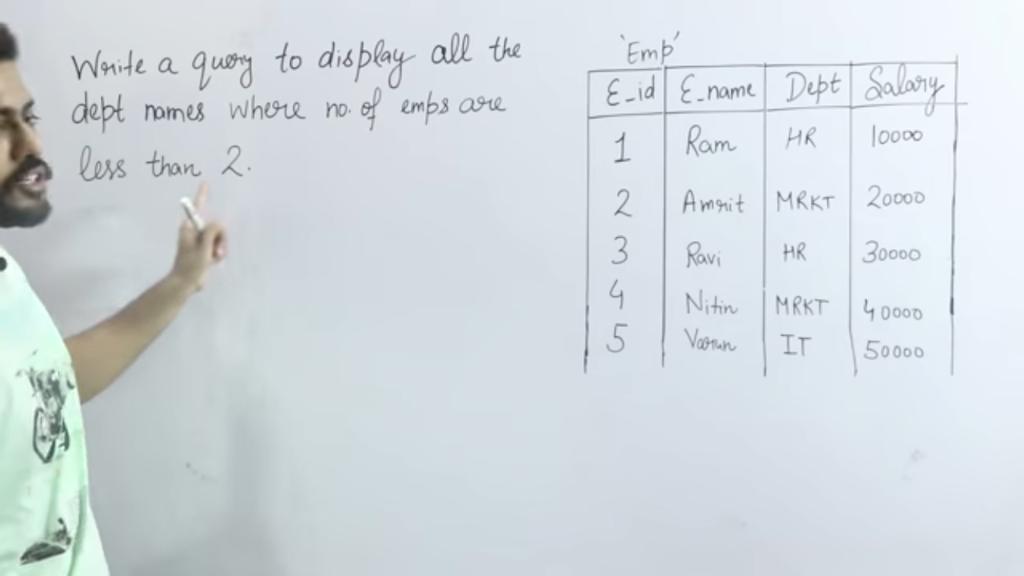 Write a query to display all the
dept names where no. of emps are
less than 2.
'Emp'
E_id E_name Dept Salary
1 Ram HR 10000
2 Amrit MRKT 20000
3 Ravi HR 30000
4 Nitin MRKT 40000
5 Varun IT 50000